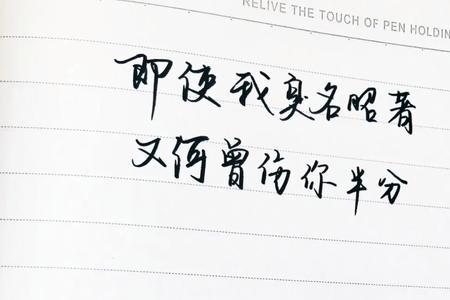 RELIVE THE TOUCH OF PEN HOLDIN
即使我臭名昭著
又何曾伤你半分